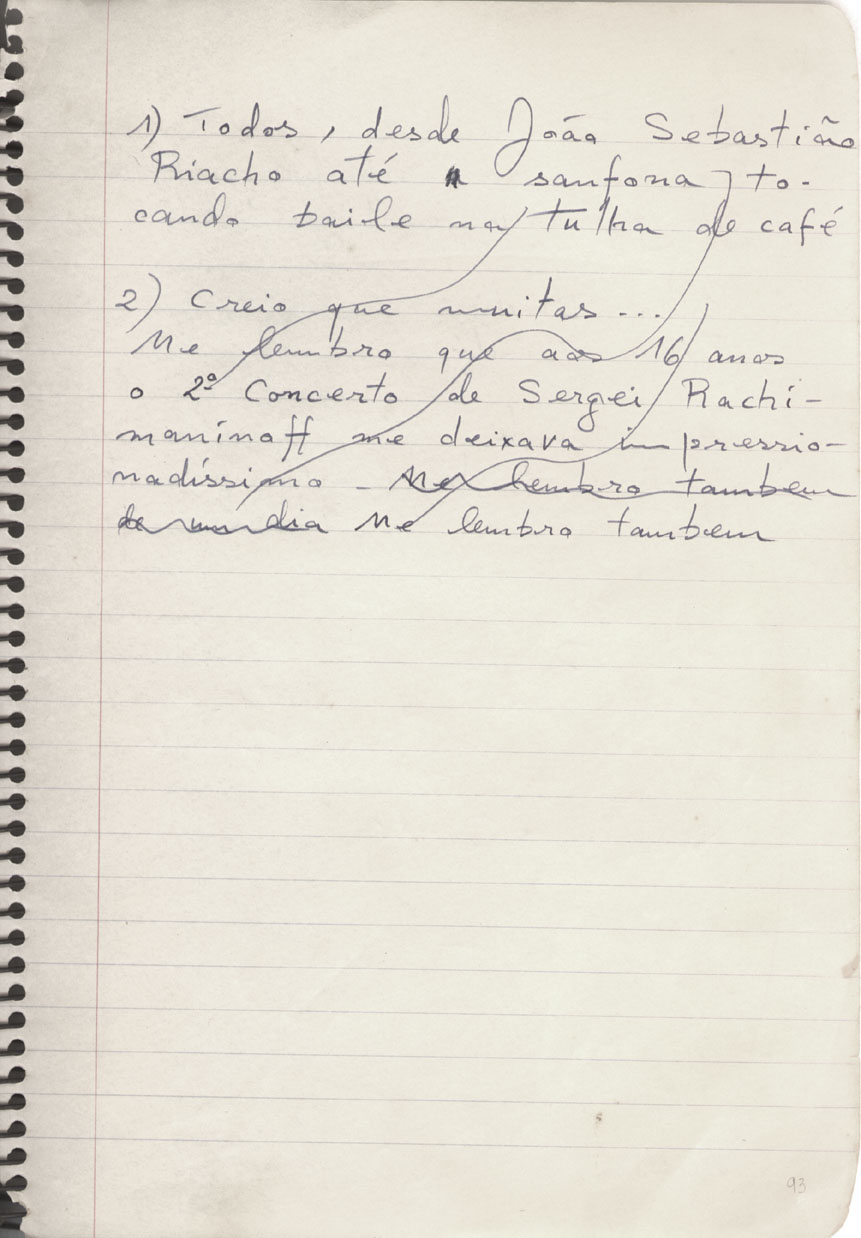 1) Todos, desde João Sebastião
Riacho até a sanfona to-
cando baile na tulha de café
2) Creio que muitas...
Me lembro que aos 16 anos
o 2º Concerto de Sergei Rachi-
maninoff me deixava impressio-
nadíssimo - Me lembro tambem
de um dia Me lembro tambem
93